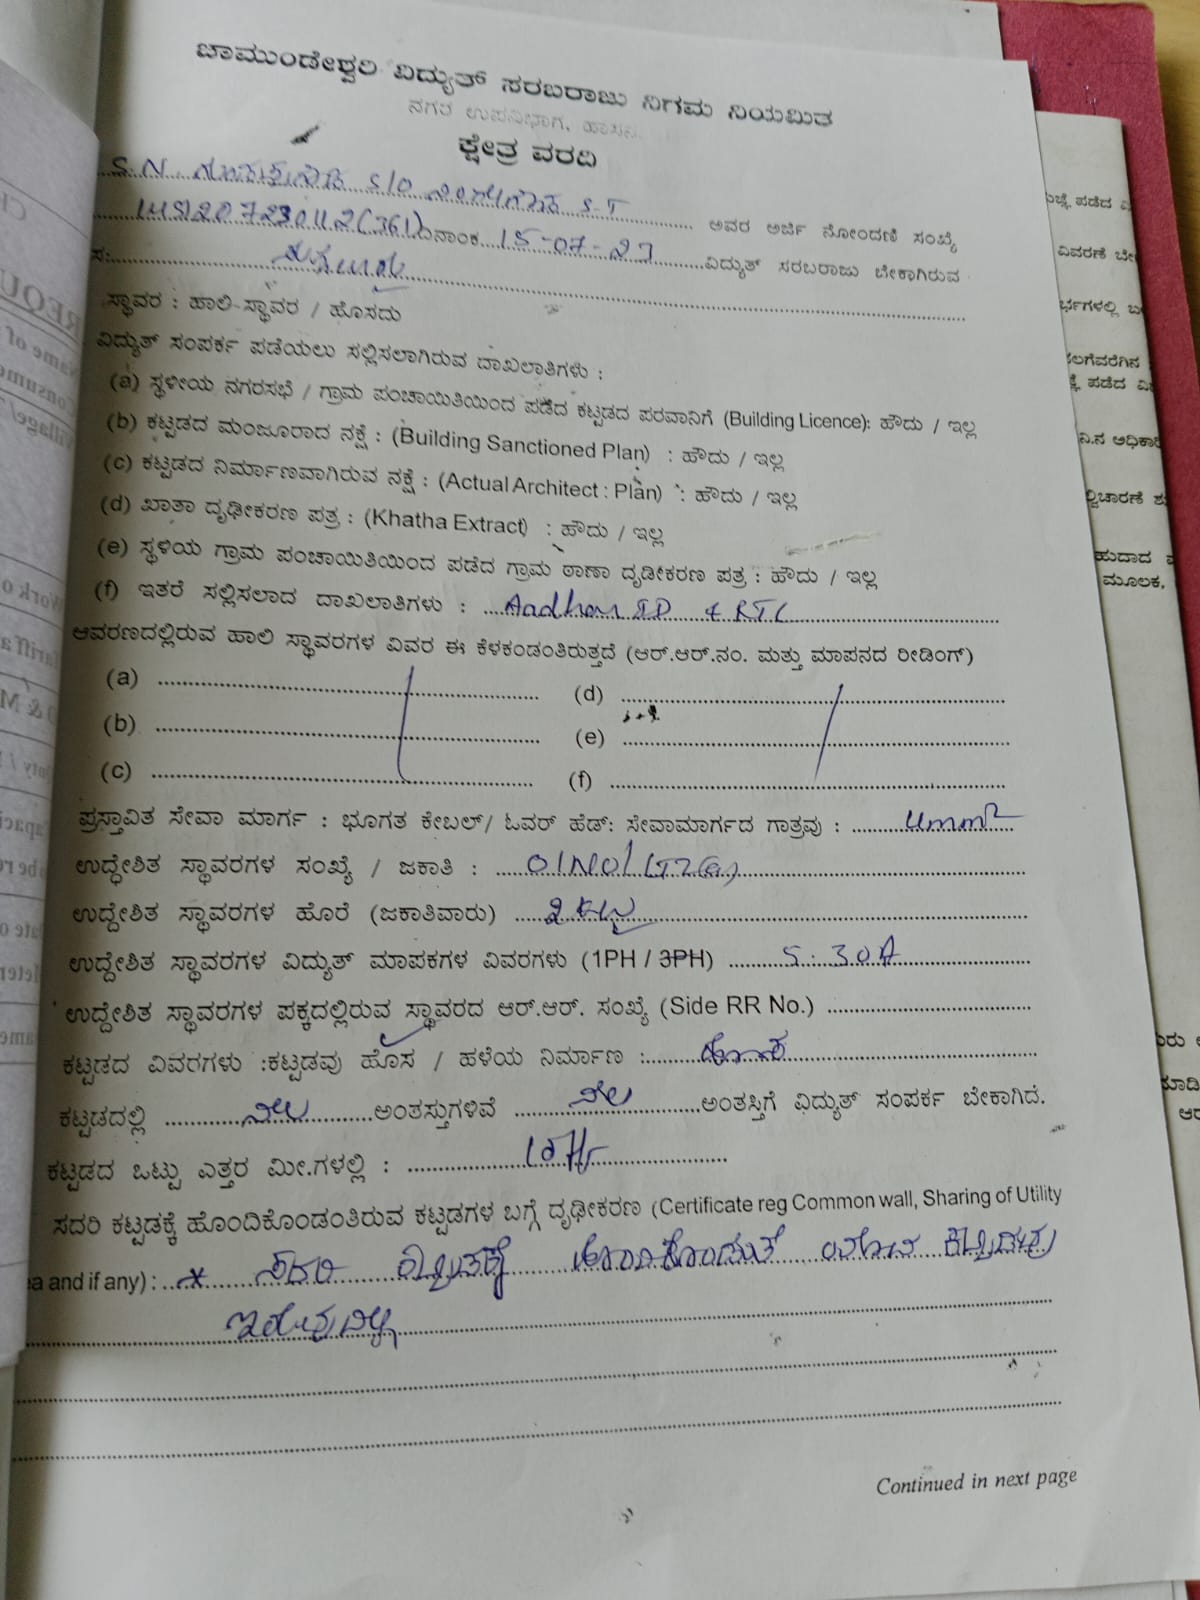 ಚಾಮುಂಡೇಶ್ವರಿ ವಿದ್ಯುತ್ ಸರಬರಾಜು ನಿಗಮ ನಿಯಮಿತ
ನಗರ ಉಪವಿಭಾಗ, ಹಾಸನ.
ಕ್ಷೇತ್ರ ವರದಿ
S.N. S/O S.T
ಅವರ ಅರ್ಜಿ ನೋಂದಣಿ ಸಂಖ್ಯೆ
(361) ದಿನಾಂಕ 15-07-23 ವಿದ್ಯುತ್ ಸರಬರಾಜು ಬೇಕಾಗಿರುವ
ಸ್ಥಾವರ : ಹಾಲಿ ಸ್ಥಾವರ / ಹೊಸದು
ವಿದ್ಯುತ್ ಸಂಪರ್ಕ ಪಡೆಯಲು ಸಲ್ಲಿಸಲಾಗಿರುವ ದಾಖಲಾತಿಗಳು :
(a) ಸ್ಥಳೀಯ ನಗರಸಭೆ / ಗ್ರಾಮ ಪಂಚಾಯಿತಿಯಿಂದ ಪಡೆದ ಕಟ್ಟಡದ ಪರವಾನಿಗೆ (Building Licence): ಹೌದು / ಇಲ್ಲ
(b) ಕಟ್ಟಡದ ಮಂಜೂರಾದ ನಕ್ಷೆ : (Building Sanctioned Plan) : ಹೌದು / ಇಲ್ಲ
(c) ಕಟ್ಟಡದ ನಿರ್ಮಾಣವಾಗಿರುವ ನಕ್ಷೆ : (Actual Architect : Plan) : ಹೌದು / ಇಲ್ಲ
(d) ಖಾತಾ ದೃಢೀಕರಣ ಪತ್ರ : (Khatha Extract) : ಹೌದು / ಇಲ್ಲ
(e) ಸ್ಥಳಿಯ ಗ್ರಾಮ ಪಂಚಾಯಿತಿಯಿಂದ ಪಡೆದ ಗ್ರಾಮ ಠಾಣಾ ದೃಡೀಕರಣ ಪತ್ರ : ಹೌದು / ಇಲ್ಲ
(f) ಇತರೆ ಸಲ್ಲಿಸಲಾದ ದಾಖಲಾತಿಗಳು : Aadhar ID & RTC
ಆವರಣದಲ್ಲಿರುವ ಹಾಲಿ ಸ್ಥಾವರಗಳ ವಿವರ ಈ ಕೆಳಕಂಡಂತಿರುತ್ತದೆ (ಆರ್.ಆರ್.ನಂ. ಮತ್ತು ಮಾಪನದ ರೀಡಿಂಗ್)
(a) (d)
(b) (e)
(c) (f)
ಪ್ರಸ್ತಾವಿತ ಸೇವಾ ಮಾರ್ಗ : ಭೂಗತ ಕೇಬಲ್/ ಓವರ್ ಹೆಡ್: ಸೇವಾಮಾರ್ಗದ ಗಾತ್ರವು : 4mm²
ಉದ್ಧೇಶಿತ ಸ್ಥಾವರಗಳ ಸಂಖ್ಯೆ / ಜಕಾತಿ : 01NO/ LT2(a)
ಉದ್ದೇಶಿತ ಸ್ಥಾವರಗಳ ಹೊರೆ (ಜಕಾತಿವಾರು) 2KW
ಉದ್ದೇಶಿತ ಸ್ಥಾವರಗಳ ವಿದ್ಯುತ್ ಮಾಪಕಗಳ ವಿವರಗಳು (1PH / 3PH) 5-30A
ಉದ್ದೇಶಿತ ಸ್ಥಾವರಗಳ ಪಕ್ಕದಲ್ಲಿರುವ ಸ್ಥಾವರದ ಆರ್.ಆರ್. ಸಂಖ್ಯೆ (Side RR No.)
ಕಟ್ಟಡದ ವಿವರಗಳು :ಕಟ್ಟಡವು ಹೊಸ / ಹಳೆಯ ನಿರ್ಮಾಣ : ಹೊಸ
ಕಟ್ಟಡದಲ್ಲಿ ನೆಲ ಅಂತಸ್ತುಗಳಿವೆ ನೆಲ ಅಂತಸ್ತಿಗೆ ವಿದ್ಯುತ್ ಸಂಪರ್ಕ ಬೇಕಾಗಿದೆ.
ಕಟ್ಟಡದ ಒಟ್ಟು ಎತ್ತರ ಮೀ.ಗಳಲ್ಲಿ :
ಸದರಿ ಕಟ್ಟಡಕ್ಕೆ ಹೊಂದಿಕೊಂಡಂತಿರುವ ಕಟ್ಟಡಗಳ ಬಗ್ಗೆ ದೃಢೀಕರಣ (Certificate reg Common wall, Sharing of Utility
and if any) : ಸದರಿ ಕಟ್ಟಡಕ್ಕೆ ಹೊಂದಿಕೊಂಡಂತೆ ಯಾವ ಕಟ್ಟಡವು
ಇರುವುದಿಲ್ಲ
Continued in next page